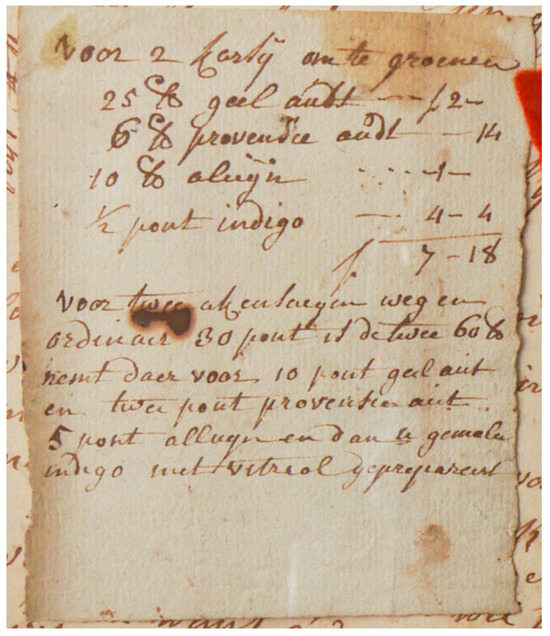 voor 2 karsij om te groenen
25 ℔ geel audt — ƒ 2 –
6 ℔ provensie audt – 14
10 ℔ aluijn .... 1 –
½ pont indigo — 4 – 4
ƒ. 7 – 18
voor twee akensaegen wegen
ordinair 30 pont is de twee 60 ℔
nemt daer voor 10 pont geel aut
en twee pont provensie aut
5 pont alluyn en dan u gemale
indigo met vitriol geprepareert